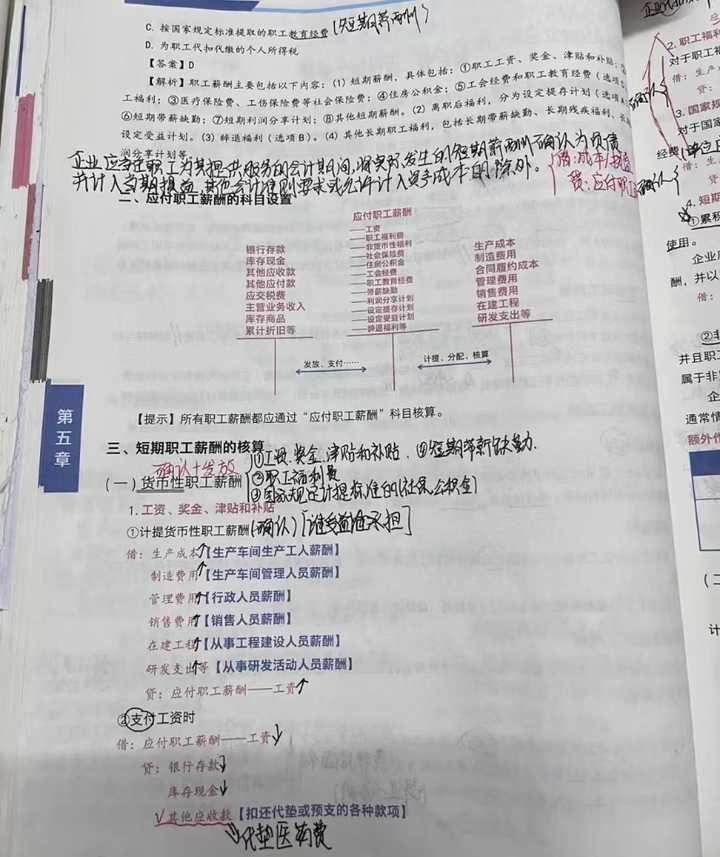 C. 按国家规定标准提取的职工教育经费(短期薪酬)
D. 为职工代扣代缴的个人所得税
【答案】D
【解析】职工薪酬主要包括以下内容:(1)短期薪酬,具体包括:①职工工资、奖金、津贴和补贴;
工福利;③医疗保险费、工伤保险费等社会保险费;④住房公积金;⑤工会经费和职工教育经费(选项
⑥短期带薪缺勤;⑦短期利润分享计划;⑧其他短期薪酬。(2)离职后福利,分为设定提存计划(选项
设定受益计划。(3)辞退福利(选项B)。(4)其他长期职工福利,包括长期带薪缺勤、长期残疾福利、长
润分享计划等。
企业应当在职工为其提供服务的会计期间,将实际发生的短期薪酬确认为负债
并计入当期损益,其他会计准则要求或允许计入资产成本的除外。
借:成本/损益
贷:应付职
二、应付职工薪酬的科目设置
应付职工薪酬
——工资
——职工福利费
——非货币性福利
——社会保险费
——住房公积金
——工会经费
——职工教育经费
——带薪缺勤
——利润分享计划
——设定提存计划
——设定受益计划
——辞退福利等
银行存款
库存现金
其他应收款
其他应付款
应交税费
主营业务收入
库存商品
累计折旧等
生产成本
制造费用
合同履约成本
管理费用
销售费用
在建工程
研发支出等
发放、支付……
计提、分配、核算
【提示】所有职工薪酬都应通过“应付职工薪酬”科目核算。
第五章
三、短期职工薪酬的核算
确认+发放
①工资、奖金、津贴和补贴、④短期带薪缺勤.
(一)货币性职工薪酬
②职工福利费
③国家规定计提标准的(社保,公积金)
1.工资、奖金、津贴和补贴
①计提货币性职工薪酬(确认)[谁受益谁承担]
借:生产成本↑【生产车间生产工人薪酬】
制造费用↑【生产车间管理人员薪酬】
管理费用↑【行政人员薪酬】
销售费用↑【销售人员薪酬】
在建工程↑【从事工程建设人员薪酬】
研发支出等↑【从事研发活动人员薪酬】
贷:应付职工薪酬——工资↑
②支付工资时
借:应付职工薪酬——工资↓
贷:银行存款↓
库存现金↓
√其他应收款【扣还代垫或预支的各种款项】
↓代垫医药费
2.职工福利
对于职工福
借:生产
贷:
3.国家规
对于国家
经费(
借:生
贷:
4.短期
①累积
使用。
企业
酬,并以
借:
②非
并且职工
属于非
企
通常情
额外作
(二
计